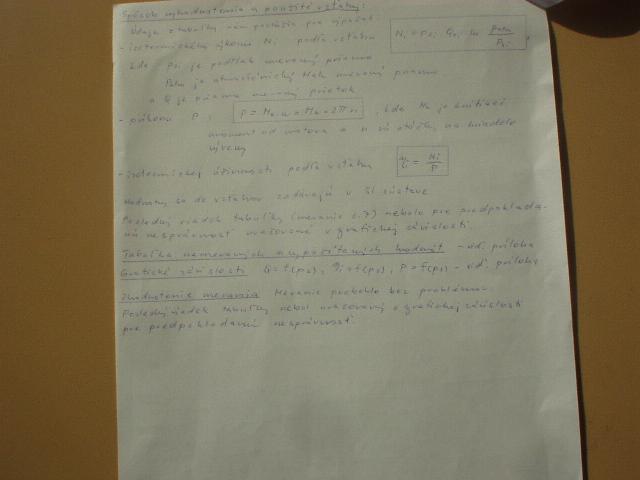 Spôsob vyhodnotenia a použité vzťahy:
Údaje z tabuľky nám poslúžia pre výpočet:
- izotermického výkonu Ni podľa vzťahu Ni = psi Qsi ln patm/psi ,
kde psi je podtlak meraný priamo
Patm je atmosférický tlak meraný priamo
a Q je priamo meraný prietok
- príkonu P: P = Mk.ω = Mk.2πn , kde Mk je krútiaci
moment od motora a n sú otáčky na hriadeli
vývevy
- izotermickej účinnosti podľa vzťahu ηi = Ni/P
Hodnoty sa do vzťahov zadávajú v SI sústave
Posledný riadok tabuľky (meranie č.7) nebolo pre predpokladanú nesprávnosť uvažované v grafickej závislosti.
Tabuľka nameraných a vypočítaných hodnôt - viď. príloha
Grafické závislosti Q=f(ps), ηi=f(ps), P=f(ps) - viď. príloha
Zhodnotenie merania Meranie prebehlo bez problémov.
Posledný riadok tabuľky nebol uvažovaný v grafickej závislosti
pre predpokladanú nesprávnosť.